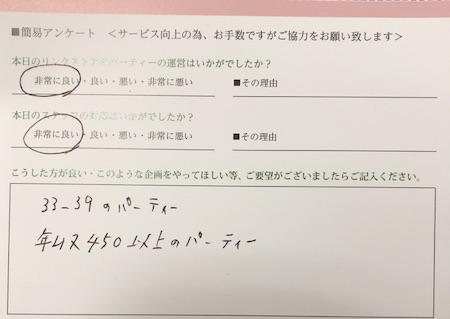 ■簡易アンケート ＜サービス向上の為、お手数ですがご協力をお願い致します＞
本日のリンクストアのパーティーの運営はいかがでしたか？
非常に良い・良い・悪い・非常に悪い ■その理由
本日のスタッフの対応はいかがでしたか？
非常に良い・良い・悪い・非常に悪い ■その理由
こうした方が良い・このような企画をやってほしい等、ご要望がございましたらご記入ください。
33-39のパーティー
年収450以上のパーティー